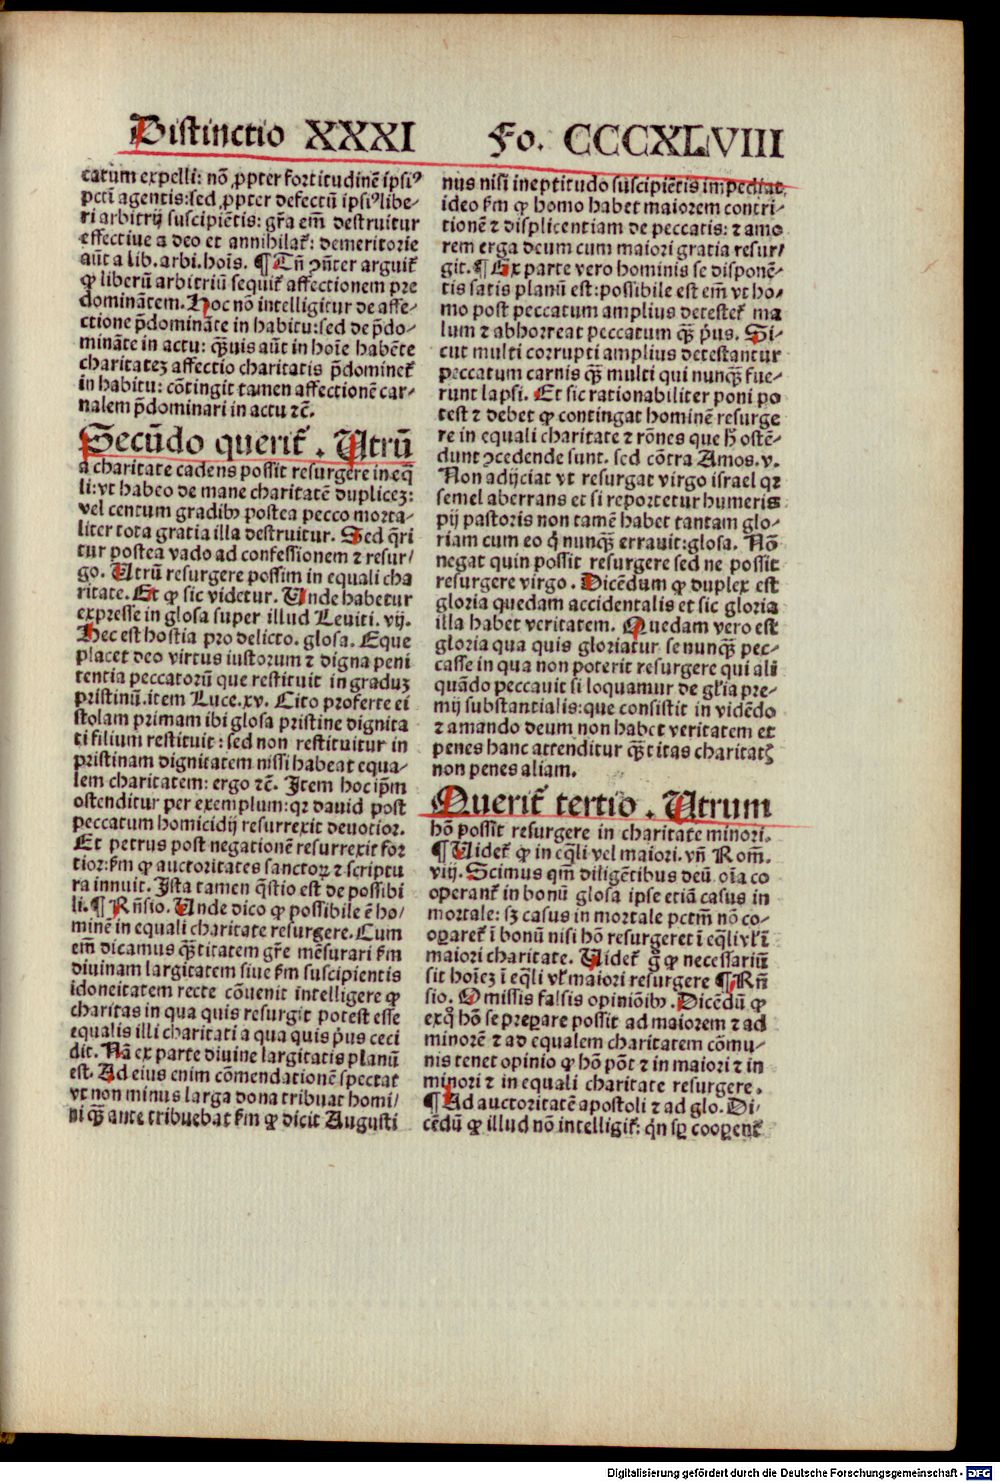 Distinctio XXXI Fo. CCCXLVIII
catum expelli: nõ ꝓpter fortitudinẽ ipsiꝰ
pcti agentis: sed ꝓpter defectũ ipsiꝰ libe-
ri arbitrij suscipiẽtis: gr̃a em̃ destruitur
effectiue a deo et annihilat᷑: demeritorie
aũt a lib. arbi. hoĩs. ¶ Tñ ꝯñter arguit᷑
ꝙ liberũ arbitriũ sequit᷑ affectionem pre
dominãtem. Hoc nõ intelligitur de affe-
ctione p̃dominãte in habitu: sed de p̃do-
minãte in actu: qq̃uis aũt in hoĩe habẽte
charitatez affectio charitatis p̃dominet᷑
in habitu: cõtingit tamen affectionẽ car-
nalem p̃dominari in actu ⁊c̃.
Secũdo querit᷑. Utrũ
a charitate cadens possit resurgere in eq̃
li: vt habeo de mane charitatẽ duplicez:
vel centum gradibꝫ postea pecco morta-
liter tota gratia illa destruitur. Sed q̃ri
tur postea vado ad confessionem ⁊ resur/
go. Utrũ resurgere possim in equali cha
ritate. Et ꝙ sic videtur. Unde habetur
expresse in glosa super illud Leuiti. vij.
Hec est hostia pro delicto. glosa. Eque
placet deo virtus iustorum ⁊ digna peni
tentia peccatorũ que restituit in graduz
pristinũ. item Luce. xv. Cito proferte ei
stolam primam ibi glosa pristine dignita
ti filium restituit: sed non restituitur in
pristinam dignitatem nissi habeat equa-
lem charitatem: ergo ⁊c̃. Item hoc ip̃m
ostenditur per exemplum: qꝛ dauid post
peccatum homicidij resurrexit deuotior.
Et petrus post negationẽ resurrexit for
tior: ẜm ꝙ auctoritates sanctoꝝ ⁊ scriptu
ra innuit. Ista tamen q̃stio est de possibi
li. ¶ Rñsio. Unde dico ꝙ possibile ẽ ho/
minẽ in equali charitate resurgere. Cum
em̃ dicamus quãtitatem gr̃e mẽsurari ẜm
diuinam largitatem siue ẜm suscipientis
idoneitatem recte cõuenit intelligere ꝙ
charitas in qua quis resurgit potest esse
equalis illi charitati a qua quis p̃us ceci
dit. Nã ex parte diuine largitatis planũ
est. Ad eius enim cõmendationẽ spectat
vt non minus larga dona tribuat homi/
ni qq̃ ante tribuebat ẜm ꝙ dicit Augusti
nus nisi ineptitudo suscipiẽtis impediat.
ideo ẜm ꝙ homo habet maiorem contri-
tionẽ ⁊ displicentiam de peccatis: ⁊ amo
rem erga deum cum maiori gratia resur/
git. ¶ Ex parte vero hominis se disponẽ-
tis satis planũ est: possibile est em̃ vt ho-
mo post peccatum amplius detestet᷑ ma
lum ⁊ abhorreat peccatum qq̃ p̃us. Si-
cut multi corrupti amplius detestantur
peccatum carnis qq̃ multi qui nunqq̃ fue-
runt lapsi. Et sic rationabiliter poni po
test ⁊ debet ꝙ contingat hominẽ resurge
re in equali charitate ⁊ rõnes que h̃ ostẽ-
dunt ꝯcedende sunt. sed cõtra Amos. v.
Non adijciat vt resurgat virgo israel qꝛ
semel aberrans et si reportetur humeris
pij pastoris non tamẽ habet tantam glo-
riam cum eo q̃ nunqq̃ errauit: glosa. Nõ
negat quin possit resurgere sed ne possit
resurgere virgo. Dicẽdum ꝙ duplex est
gloria quedam accidentalis et sic gloria
illa habet veritatem. Quedam vero est
gloria qua quis gloriatur se nunqq̃ pec-
casse in qua non poterit resurgere qui ali
quãdo peccauit si loquamur de gl̃ia pre-
mij substantialis: que consistit in vidẽdo
⁊ amando deum non habet veritatem et
penes hanc attenditur quãtitas charitatꝭ
non penes aliam.
Querit᷑ tertio. Utrum
hõ possit resurgere in charitate minori.
¶ Uidet᷑ ꝙ in eq̃li vel maiori. vñ Rom̃.
viij. Scimus qm̃ diligẽtibus deũ oĩa co
operant᷑ in bonũ glosa ipse etiã casus in
mortale: sꝫ casus in mortale pctm̃ nõ co-
oꝑaret᷑ ĩ bonũ nisi hõ resurgeret ĩ eq̃li vl̃ ĩ
maiori charitate. Uidet᷑ g̃ ꝙ necessariũ
sit hoĩez ĩ eq̃li vl̃ maiori resurgere ¶ Rñ
sio. Omissis falsis opiniõibꝫ. Dicẽdũ ꝙ
exq̃ hõ se preꝑare possit ad maiorem ⁊ ad
minorẽ ⁊ ad equalem charitatem cõmu-
nis tenet opinio ꝙ hõ põt ⁊ in maiori ⁊ in
minori ⁊ in equali charitate resurgere.
¶ Ad auctoritatẽ apostoli ⁊ ad glo. Di/
cẽdũ ꝙ illud nõ intelligit᷑: q̃n sꝑ cooꝑent᷑
Digitalisierung gefördert durch die Deutsche Forschungsgemeinschaft - DFG